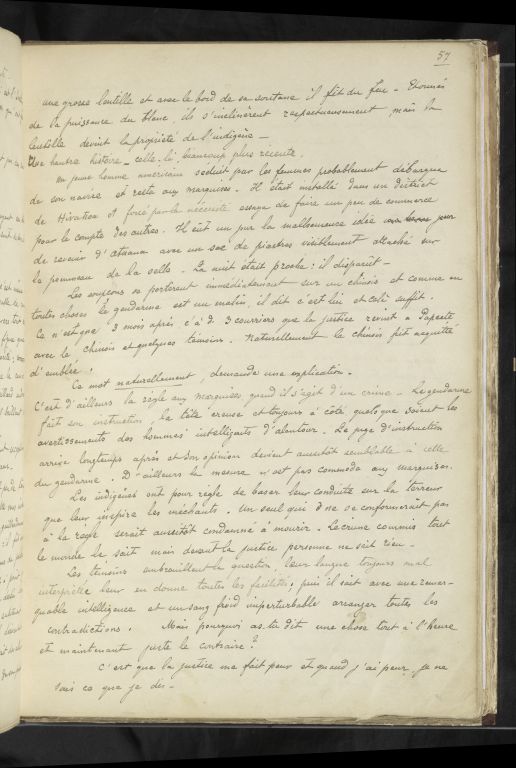 57
une grosse lentille et avec le bord de sa soutane il fît du feu - Etonnés
de la puissance du blanc, ils s'inclinèrent respectueusement mais la
lentille devint la propriété de l'indigène -
Une hautre histoire - celle-là beaucoup plus récente.
un jeune homme américain séduit par les femmes probablement débarqua
de son navire et resta aux marquises. Il était installé dans un district
de Hivahoa et force par la nécessité essaya de faire un peu de commerce
pour le compte des autres. Il eût un jour la malheureuse idée un jour
de revenir d'atuana avec un sac de piastres visiblement attaché sur
le pommeau de la selle. La nuit était proche : il disparut -
Les soupçons se portèrent immédiatement sur un chinois et comme en
toutes choses le gendarme est un malin, il dit c'est lui et celà suffit.
Ce n'est que 3 mois après c'à d. 3 courriers que la justice revint à Papeete
avec le chinois et quelques témoins. Naturellement le chinois fut acquitté
d'emblée.
Ce mot naturellement, demande une explication.
C'est d'ailleurs la règle aux marquises quand il s'agit d'un crime - Le gendarme
fait son instruction, la tête creuse et toujours à côté quelque soient les
avertissements des hommes intelligents d'alentour. Le juge d'instruction
arrive longtemps après et son opinion devient aussitôt semblable à celle
du gendarme. D'ailleurs la mesure n'est pas commode aux marquises.
Les indigènes ont pour règle de baser leur conduite sur la terreur
que leur inspire les méchants. Un seul qui d ne se conformerait pas
à la règle serait aussitôt condamné à mourir. Le crime commis tout
le monde le sait mais devant la justice personne ne sait rien -
Les témoins embrouillent la question, leur langue toujours mal
interprétée leur en donne toutes les facilités; puis il sait avec une remar-
quable intelligence et un sang froid imperturbable arranger toutes les
contradictions. Mais pourquoi as-tu dit une chose tout à l'heure
et maintenant juste le contraire ?
C'est que la justice me fait peur et quand j'ai peur je ne
sais ce que je dis -